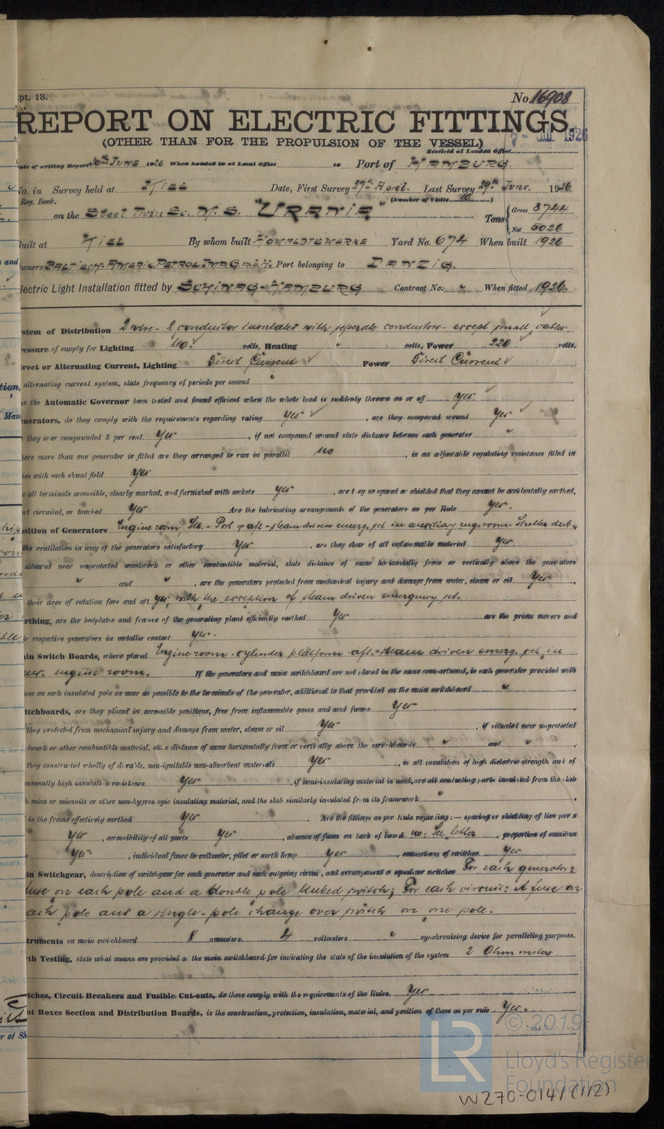 pt. 13. No. 16908
REPORT ON ELECTRIC FITTINGS.
(OTHER THAN FOR THE PROPULSION OF THE VESSEL)
Received at London Office 1926
ate of writing Report 30th June 1926 When handed in at Local Office 19 Port of HAMBURG.
No. in Survey held at KIEL Date, First Survey 27th April. Last Survey 29th June, 1926
Reg. Book. (Number of Visits 10)
on the Steel Twin Sc. M. S. "URANIA" Tons { Gross 8744
Net 5026
uilt at KIEL By whom built HOWALDTSWERKE Yard No. 674 When built 1926
wners Port belonging to DANZIG.
lectric Light Installation fitted by SCHINAG-HAMBURG Contract No. " When fitted 1926.
stem of Distribution 2 wire - 2 conductor insulated with separate conductor - except small cables.
essure of supply for Lighting 110 volts, Heating " volts, Power 220 volts.
rect or Alternating Current, Lighting Direct Current Power Direct Current
alternating current system, state frequency of periods per second
s the Automatic Governor been tested and found efficient when the whole load is suddenly thrown on or off yes
enerators, do they comply with the requirements regarding rating yes , are they compound wound yes
they over compounded 5 per cent. yes , if not compound wound state distance between each generator "
here more than one generator is fitted are they arranged to run in parallel no , is an adjustable regulating resistance fitted in
es with each shunt field yes
e all terminals accessible, clearly marked, and furnished with sockets yes , are they so spaced or shielded that they cannot be accidentally earthed,
t circuited, or touched yes Are the lubricating arrangements of the generators as per Rule yes.
osition of Generators Engine room, Stb. - Port & aft - steam driven emerg. set in auxiliary eng. room
the ventilation in way of the generators satisfactory yes , are they clear of all inflammable material yes
situated near unprotected woodwork or other combustible material, state distance of same horizontally from or vertically above the generators
" and " , are the generators protected from mechanical injury and damage from water, steam or oil yes
their axes of rotation fore and aft yes, with the exception of steam driven emergency set.
rthing, are the bedplates and frames of the generating plant efficiently earthed yes are the prime movers and
respective generators in metallic contact yes.
in Switch Boards, where placed Engine room - cylinder platform aft - steam driven emerg. set, in
engine room. If the generators and main switchboard are not placed in the same compartment, is each generator provided with
use on each insulated pole as near as possible to the terminals of the generator, additional to that provided on the main switchboard "
itchboards, are they placed in accessible positions, free from inflammable gases and acid fumes yes
they protected from mechanical injury and damage from water, steam or oil yes , if situated near unprotected
dwork or other combustible material, state distance of same horizontally from or vertically above the switchboards " and "
they constructed wholly of durable, non-ignitable non-absorbent materials yes , is all insulation of high dielectric strength and of
manently high insulation resistance yes , if semi-insulating material is used, are all conducting parts insulated from the slab
h mica or micanite or other non-hygroscopic insulating material, and the slab similarly insulated from its framework "
is the frame effectively earthed yes Are the fittings as per Rule regarding :— spacing or shielding of live parts
yes , accessibility of all parts yes , absence of fuses on back of board no: See letter , proportion of omnibus
yes , individual fuses to voltmeter, pilot or earth lamp yes , connections of switches yes
in Switchgear, description of switchgear for each generator and each outgoing circuit, and arrangement of equalizer switches For each generator:
fuse on each pole and a double pole linked switch; For each circuit: A fuse on
each pole and a single-pole change over switch on one pole.
truments on main switchboard 8 ammeters 4 voltmeters " synchronising device for paralleling purposes.
th Testing, state what means are provided at the main switchboard for indicating the state of the insulation of the system 2 Ohm meters
tches, Circuit Breakers and Fusible Cut-outs, do these comply with the requirements of the Rules. yes
nt Boxes Section and Distribution Boards, is the construction, protection, insulation, material, and position of these as per rule yes.
© 2019
LR
Lloyd's Register
Foundation
W270-0141 (1/2)